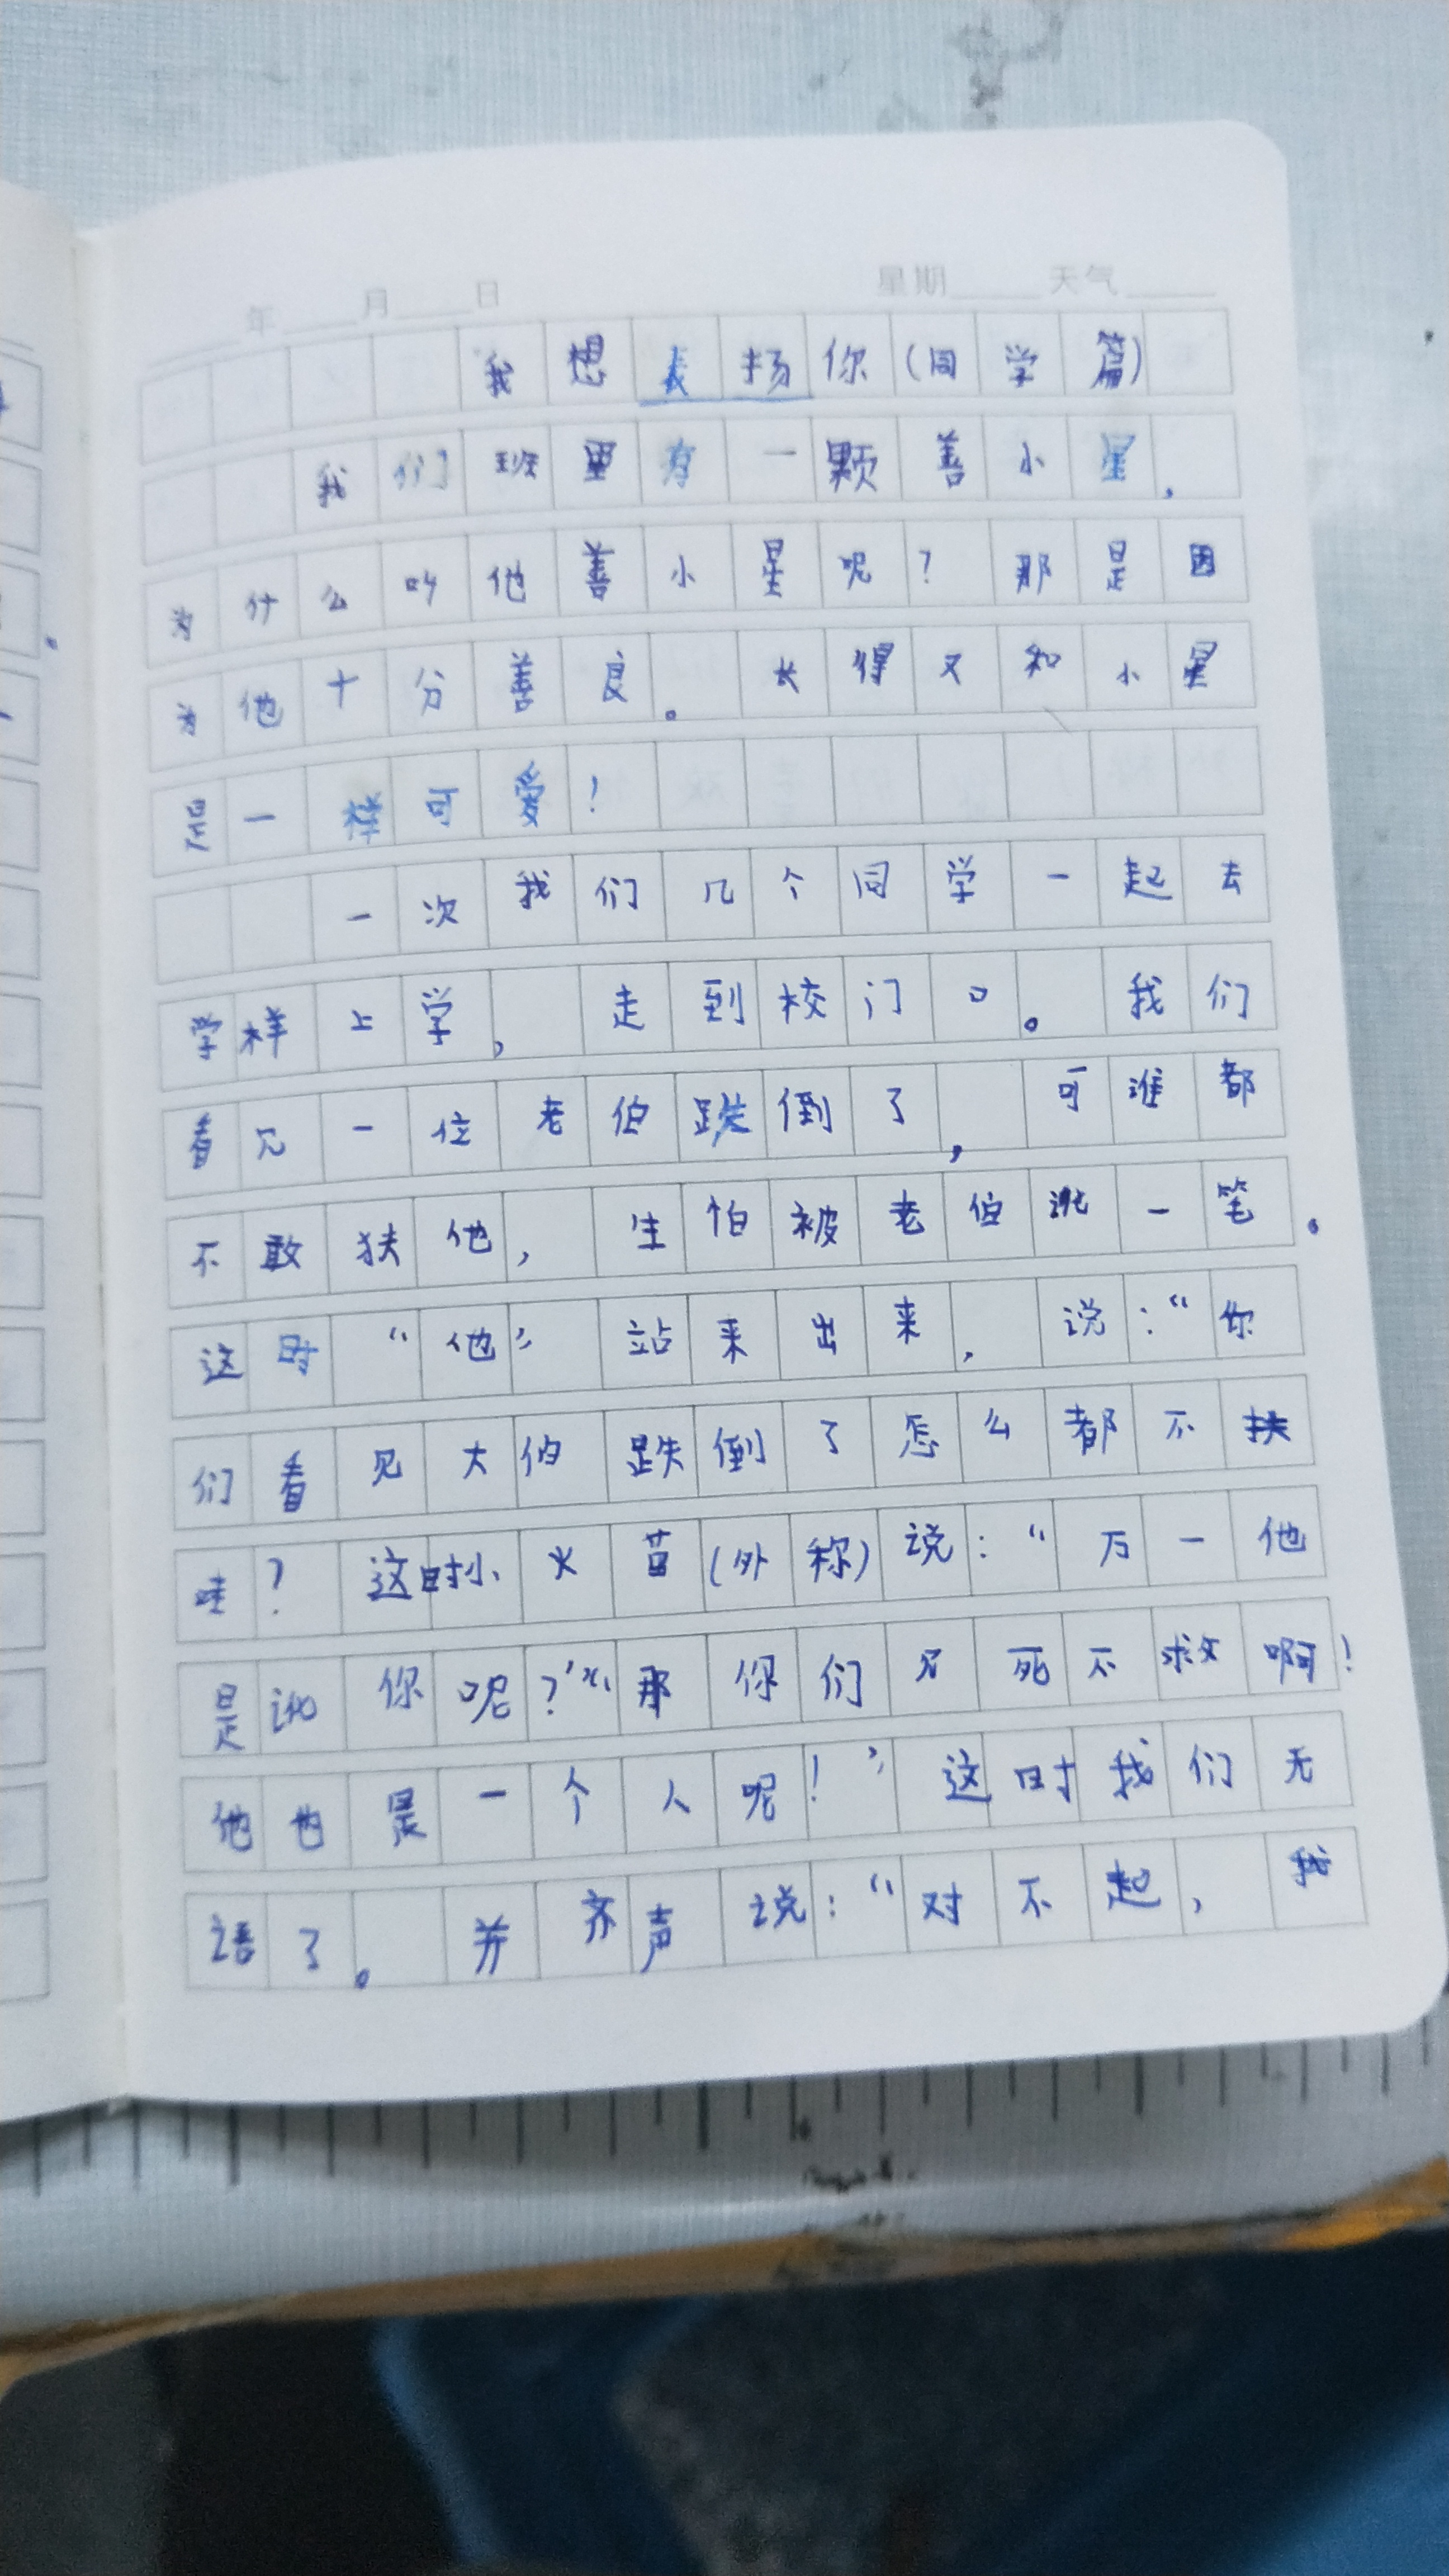 年 月 日 星期 天气
我想表扬你(同学篇)
我们班里有一颗善小星,
为什么叫他善小星呢?那是因
为他十分善良。长得又和小星
是一样可爱!
一次我们几个同学一起去
学样上学,走到校门口。我们
看见一位老伯跌倒了,可谁都
不敢扶他,生怕被老伯讹一笔。
这时“他”站来出来,说:“你
们看见大伯跌倒了怎么都不扶
哇?这时小火苗(外称)说:“万一他
是讹你呢?”“那你们见死不救啊!
他也是一个人呢!”这时我们无
语了。并齐声说:“对不起,我